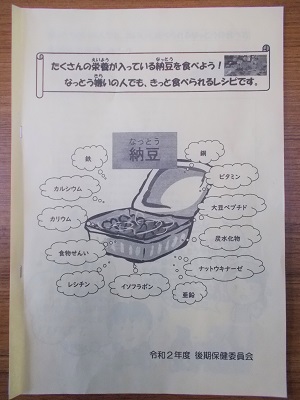 たくさんの栄養が入っている納豆を食べよう！
なっとう嫌いの人でも、きっと食べられるレシピです。
なっとう
納豆
鉄
銅
カルシウム
ビタミン
カリウム
大豆ペプチド
食物せんい
炭水化物
レシチン
ナットウキナーゼ
イソフラボン
亜鉛
令和2年度 後期保健委員会